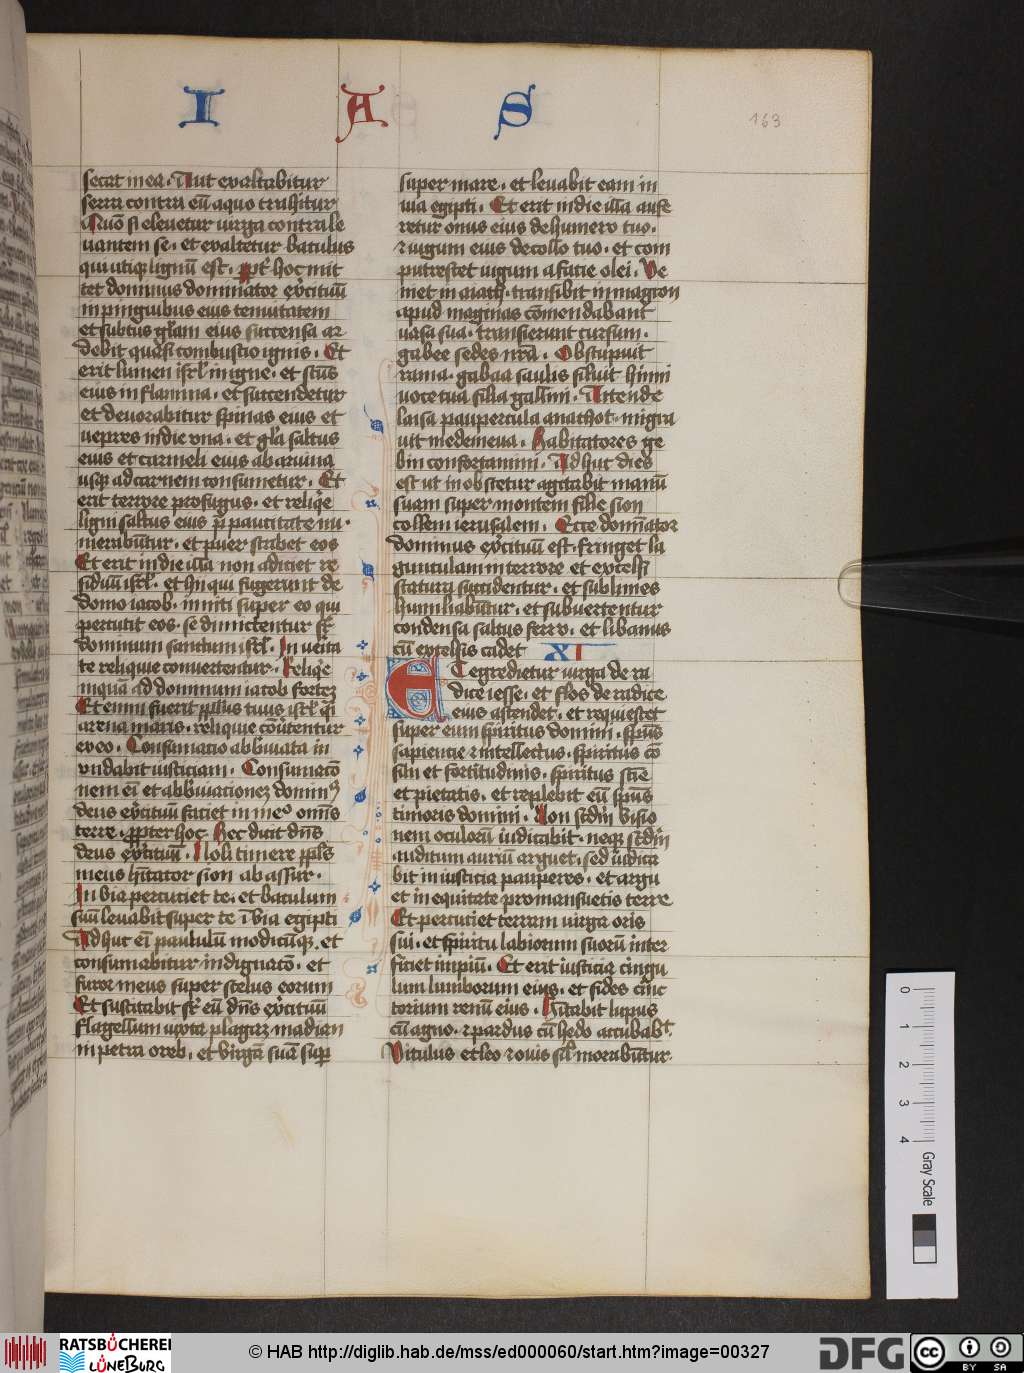 I A S
163
secat in ea. Aut exaltabitur
serra contra eū a quo trahitur
Quō si elevetur virga contra le
vantem se. et exaltetur batulus
qui utiq; lignū est. Ppt' hoc mit
tet dominus dominator ex̄cituū
in pinguibus eius tenuitatem
et subtus gl̄am eius succensa ar
debit quasi combustio ignis. Et
erit lumen isrl̄ in igne. et scūs
eius in flamma. et succendetur
et devorabitur spinas eius et
vepres in die vna. et gl̄a saltus
eius et carmeli eius ab anima
usq; ad carnem consumetur. Et
erit terrore profugus. et reliq̄e
ligni saltus eius p̄ paucitate nu
merabūtur. et puer scribet eos
Et erit in die illa non adiciet re
siduū isrl̄. et hii qui fugerunt de
domo iacob. inniti super eo qui
percutit eos. se dimictentur sr̄
dominum sanctum isrl̄. In verita
te reliquie convertentur. Reliq̄e
inquā ad dominum iacob fortez
Et enim fuerit pplūs tuus isrl̄ q̄i
arena maris. reliquie cōvertentur
ex eo. Consumatio abbr̄viata in
vndabit iusticiam. Consumacō
nem ei et abbr̄viacionez domin9
deus ex̄cituū faciet in meo omīs
terre. ppter hoc. Hec dicit dn̄s
deus ex̄cituū. Noli timere ppl̄s
meus hītator sion ab assur.
In v̄ga percutiet te. et baculum
suū levabit super te ī via egipti
Adhuc ei paululū modicūq;. et
consumabitur indignacō. et
furor meus super scelus eorum
Et suscitabit sr̄ eū dn̄s ex̄cituū
flagellum iuxta plagaz madian
in petra oreb. et virgā suā sup
super mare. et levabit eam in
via egipti. Et erit in die illa aufe
retur onus eius de humero tuo.
z iugum eius de collo tuo. et com
putrescet iugum a facie olei. Ve
niet in aiath. transibit in magron
apud magmas cōmendabant
vasa sua. transierunt cursum.
gabee sedes nr̄a. Obstupuit
rama. gabaa saulis sil̄uit hinni
voce tua filia gallim. Attende
laisa paupercula anathot. migra
vit medemena. Habitatores ge
bin confortamini. Adhuc dies
est ut in obstetur agitabit manū
suam super montem filie sion
collem ierusalem. Ecce dominator
dominus ex̄cituū est. fringet la
gunculam in terrore et excelsi
statura succidentur. et sublimes
humiliabūtur. et subvertentur
condensa saltus ferro. et libanus
cū excelsis cadet XI
Egredietur virga de ra
dice iesse. et flos de radice
eius ascendet. et requiescet
super eum spiritus domini. sp̄us
sapientie z intellectus. spiritus cō
silii et fortitudinis. spiritus scīe
et pietatis. et replebit eū sp̄us
timoris domini. Non scd̄m visio
nem oculorū iudicabit. neq; scd̄m
auditum auriū arguet. sed iudica
bit in iusticia pauperes. et argu
et in equitate pro mansuetis terre
Et percutiet terram virga oris
sui. et spiritu labiorum suorū inter
ficiet impiū. Et erit iusticia cingu
lum lumborum eius. et fides cinc
torium renū eius. Hītabit lupus
cū agno. z pardus cū hedo accubabt
Vitulus et leo z ovis sil̄ morabūtur.
0 1 2 3 4
Gray Scale
RATSBÜCHEREI
LÜNEBURG
© HAB http://diglib.hab.de/mss/ed000060/start.htm?image=00327
DFG
cc BY SA